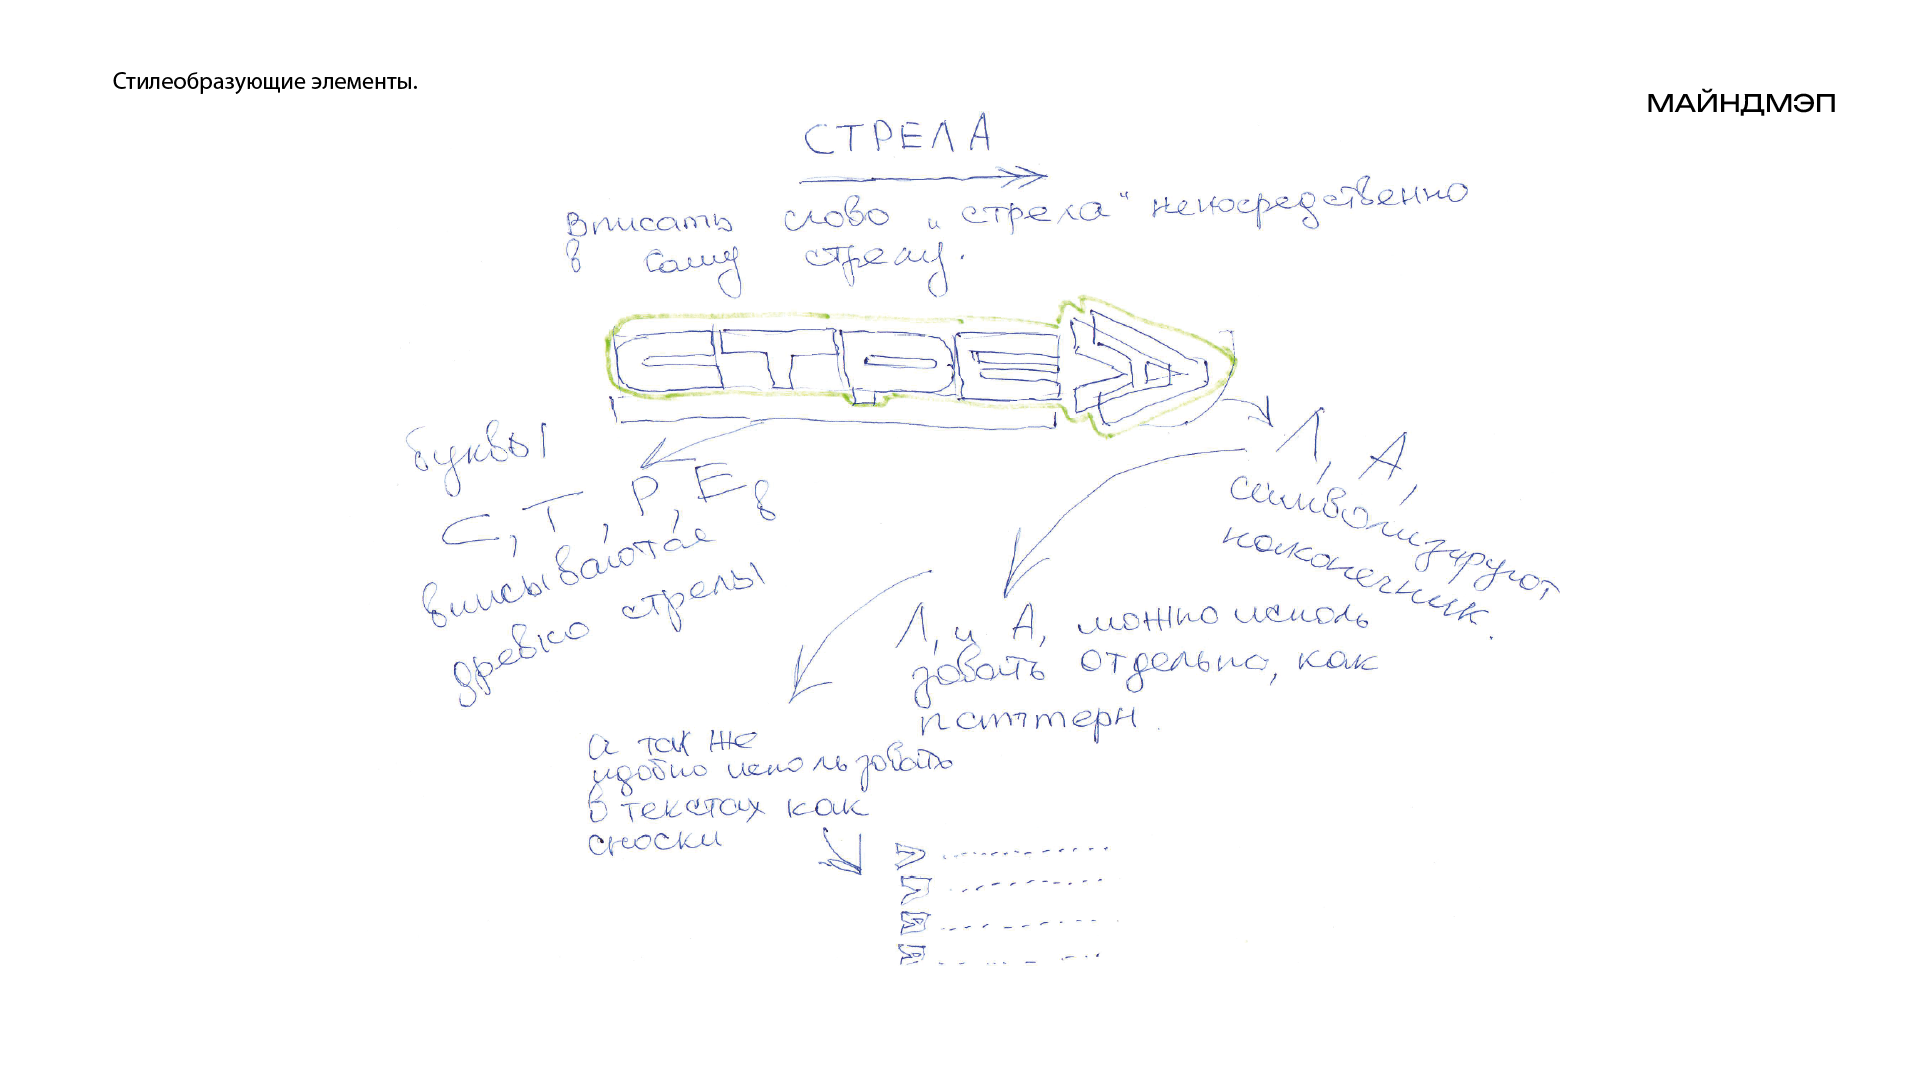 Стилеобразующие элементы.
МАЙНДМЭП
СТРЕЛА
Вписать слово „стрела" непосредственно
в саму стрелу.
СТРЕЛА
буквы
С, Т, Р, Е в
вписываются
древко стрелы
Л, А,
символизируют
наконечник.
Л, и А, можно исполь
зовать отдельно, как
паттерн.
а так же
удобно использовать
в текстах как
сноски